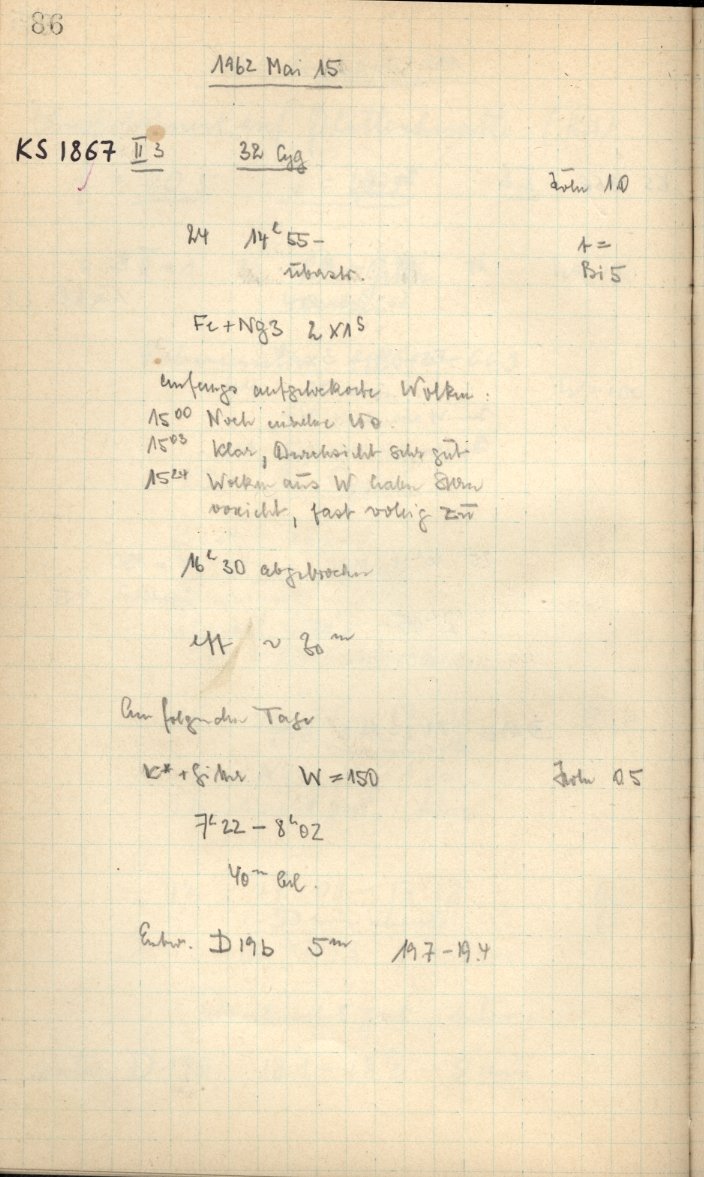 86
1962 Mai 15
KS 1867 II 3 32 Cyg
1.0
24 14h 55 -
t =
Bi 5
überstr.
Fe + Ng3 2 x 1s
anfangs aufgelockerte Wolken.
15 00 Noch einzelne Wo.
15 03 Klar, Durchsicht sehr gut
15 24 Wolken aus W haben Stern
erreicht, fast völlig zu
16h 30 abgebrochen
eff ~ 30 m
Am folgenden Tage
K* + Gitter W = 150
0.5
7h 22 - 8h 02
40 m bel.
Entw. D 19b 5 m 19.7 - 19.4